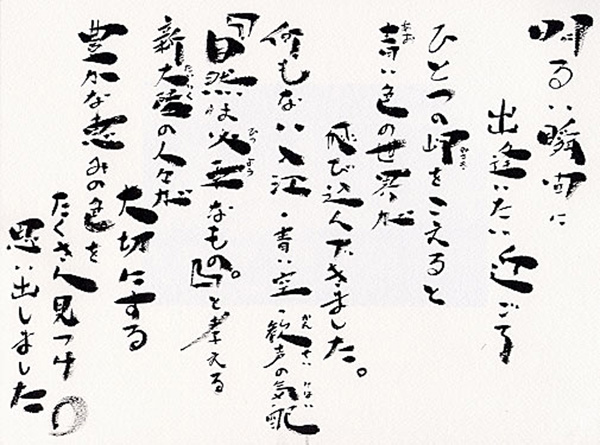 明るい瞬間に
出逢いたい近ごろ
みさき
ひとつの岬をこえると
あお
青い色の世界が
飛び込んできました。
かんせい けはい
何もない入江・青い空・歓声の気配
ひつよう
「自然は必要なもの。」と考える
たいりく
新大陸の人々が
大切にする
豊かな恵みの色を
たくさん見つけ
思い出しました